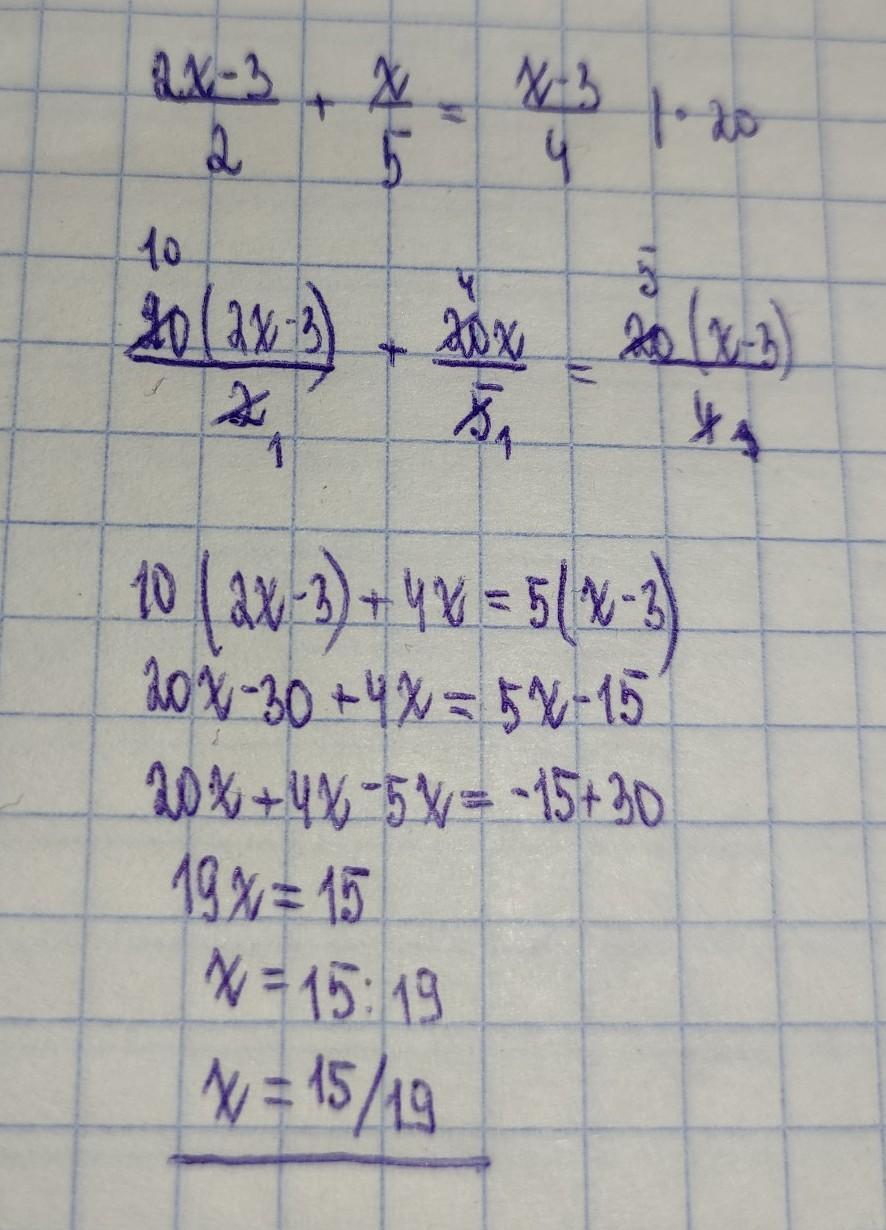 (2x-3)/2 + x/5 = (x-3)/4 | · 20
10 4 5
20(2x-3)/2 + 20x/5 = 20(x-3)/4
1 1 1
10(2x-3)+4x=5(x-3)
20x-30+4x=5x-15
20x+4x-5x=-15+30
19x=15
x=15:19
x=15/19